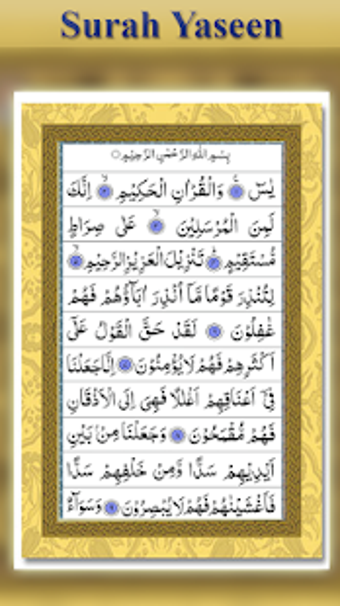 Surah Yaseen
بِسْمِ اللّٰهِ الرَّحْمٰنِ الرَّحِيْمِ
يٰسٓ وَالْقُرْاٰنِ الْحَكِيْمِ اِنَّكَ
لَمِنَ الْمُرْسَلِيْنَ عَلٰى صِرَاطٍ
مُّسْتَقِيْمٍ تَنْزِيْلَ الْعَزِيْزِ الرَّحِيْمِ
لِتُنْذِرَ قَوْمًا مَّاۤ اُنْذِرَ اٰبَآؤُهُمْ فَهُمْ
غٰفِلُوْنَ لَقَدْ حَقَّ الْقَوْلُ عَلٰۤى
اَكْثَرِهِمْ فَهُمْ لَا يُؤْمِنُوْنَ اِنَّا جَعَلْنَا
فِىْۤ اَعْنَاقِهِمْ اَغْلٰلًا فَهِىَ اِلَى الْاَذْقَانِ
فَهُمْ مُّقْمَحُوْنَ وَجَعَلْنَا مِنْۢ بَيْنِ
اَيْدِيْهِمْ سَدًّا وَّمِنْ خَلْفِهِمْ سَدًّا
فَاَغْشَيْنٰهُمْ فَهُمْ لَا يُبْصِرُوْنَ وَسَوَآءٌ